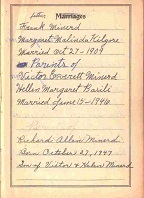 Marriages
Frank Minerd
Margaret Malinda Kilgore
Married Oct 27-1909
Parents of
Victor Everett Minerd
Hellen Margaret Barili
Married June 15-1946
Richard Allan Minerd
Born October 27, 1947
Son of Victor & Helen Minerd